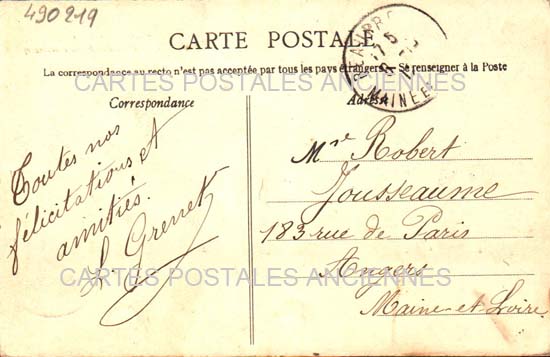 490219
CARTE POSTALE
La correspondance au recto n'est pas acceptée par tous les pays étrangers. Se renseigner à la Poste
CARTES POSTALES ANCIENNES
Correspondance
Adresse
MAINE
Toutes nos
félicitations et
amitiés.
Grenet
Mr Robert
Jousseaume
183 rue de Paris
Angers
Maine et Loire
CARTES POSTALES ANCIENNES